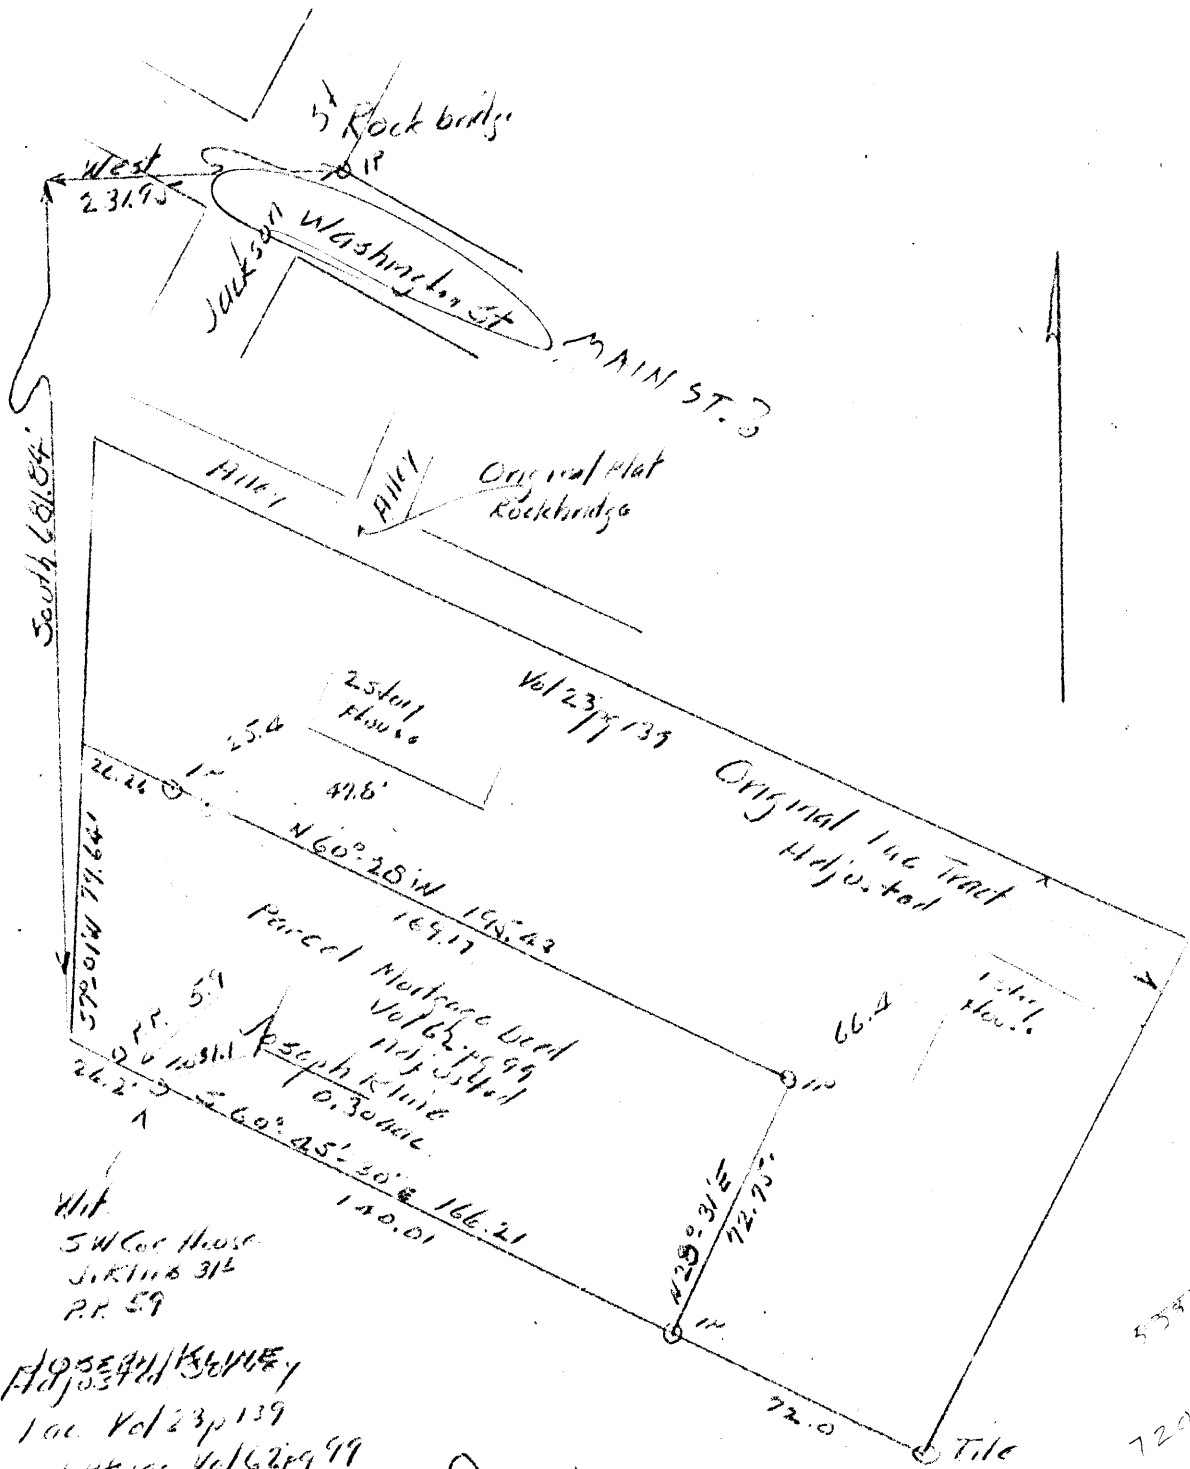 Rockbridge
IP
West
231.95
Jackson
Washington St
MAIN ST.
South 681.84'
Alley
Alley
Original Plat
Rockbridge
2 Story
House
25.4
49.8'
Vol 23 pg 139
Original 1 ac Tract
Adjusted
26.26
N 60°-28'W 195.43
169.17
S 7°-01'W 79.64'
Parcel Mortgage Deed
Vol 62 pg 99
Adjusted
Joseph Kline
0.30
P.P. 59
31.1
66.4
House
26.2'
S 60°-45'-30"E 166.21
140.01
N 28°-31'E
72.95'
Wit
SW Cor House
J. Kline 31
P.P. 59
Adjusted Survey
1 ac Vol 23 p 139
Vol 62 pg 99
72.0
Tile
720